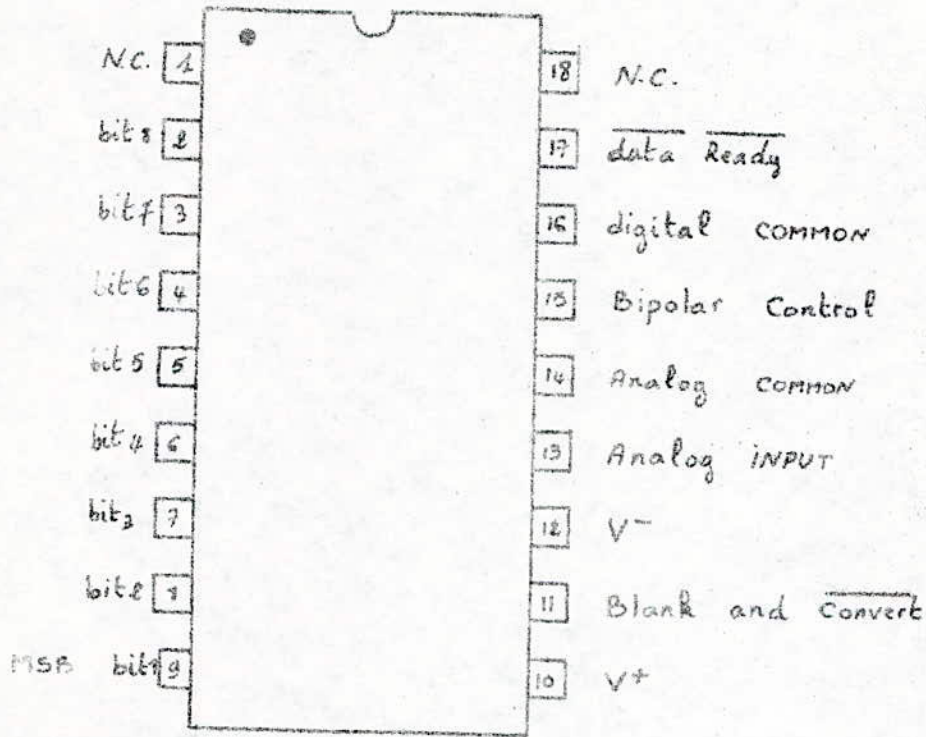 N.C. 1
bit 8 2
bit 7 3
bit 6 4
bit 5 5
bit 4 6
bit 3 7
bit 2 8
MSB bit 1 9
18 N.C.
17 data Ready
16 digital COMMON
15 Bipolar Control
14 Analog COMMON
13 Analog INPUT
12 V⁻
11 Blank and Convert
10 V⁺